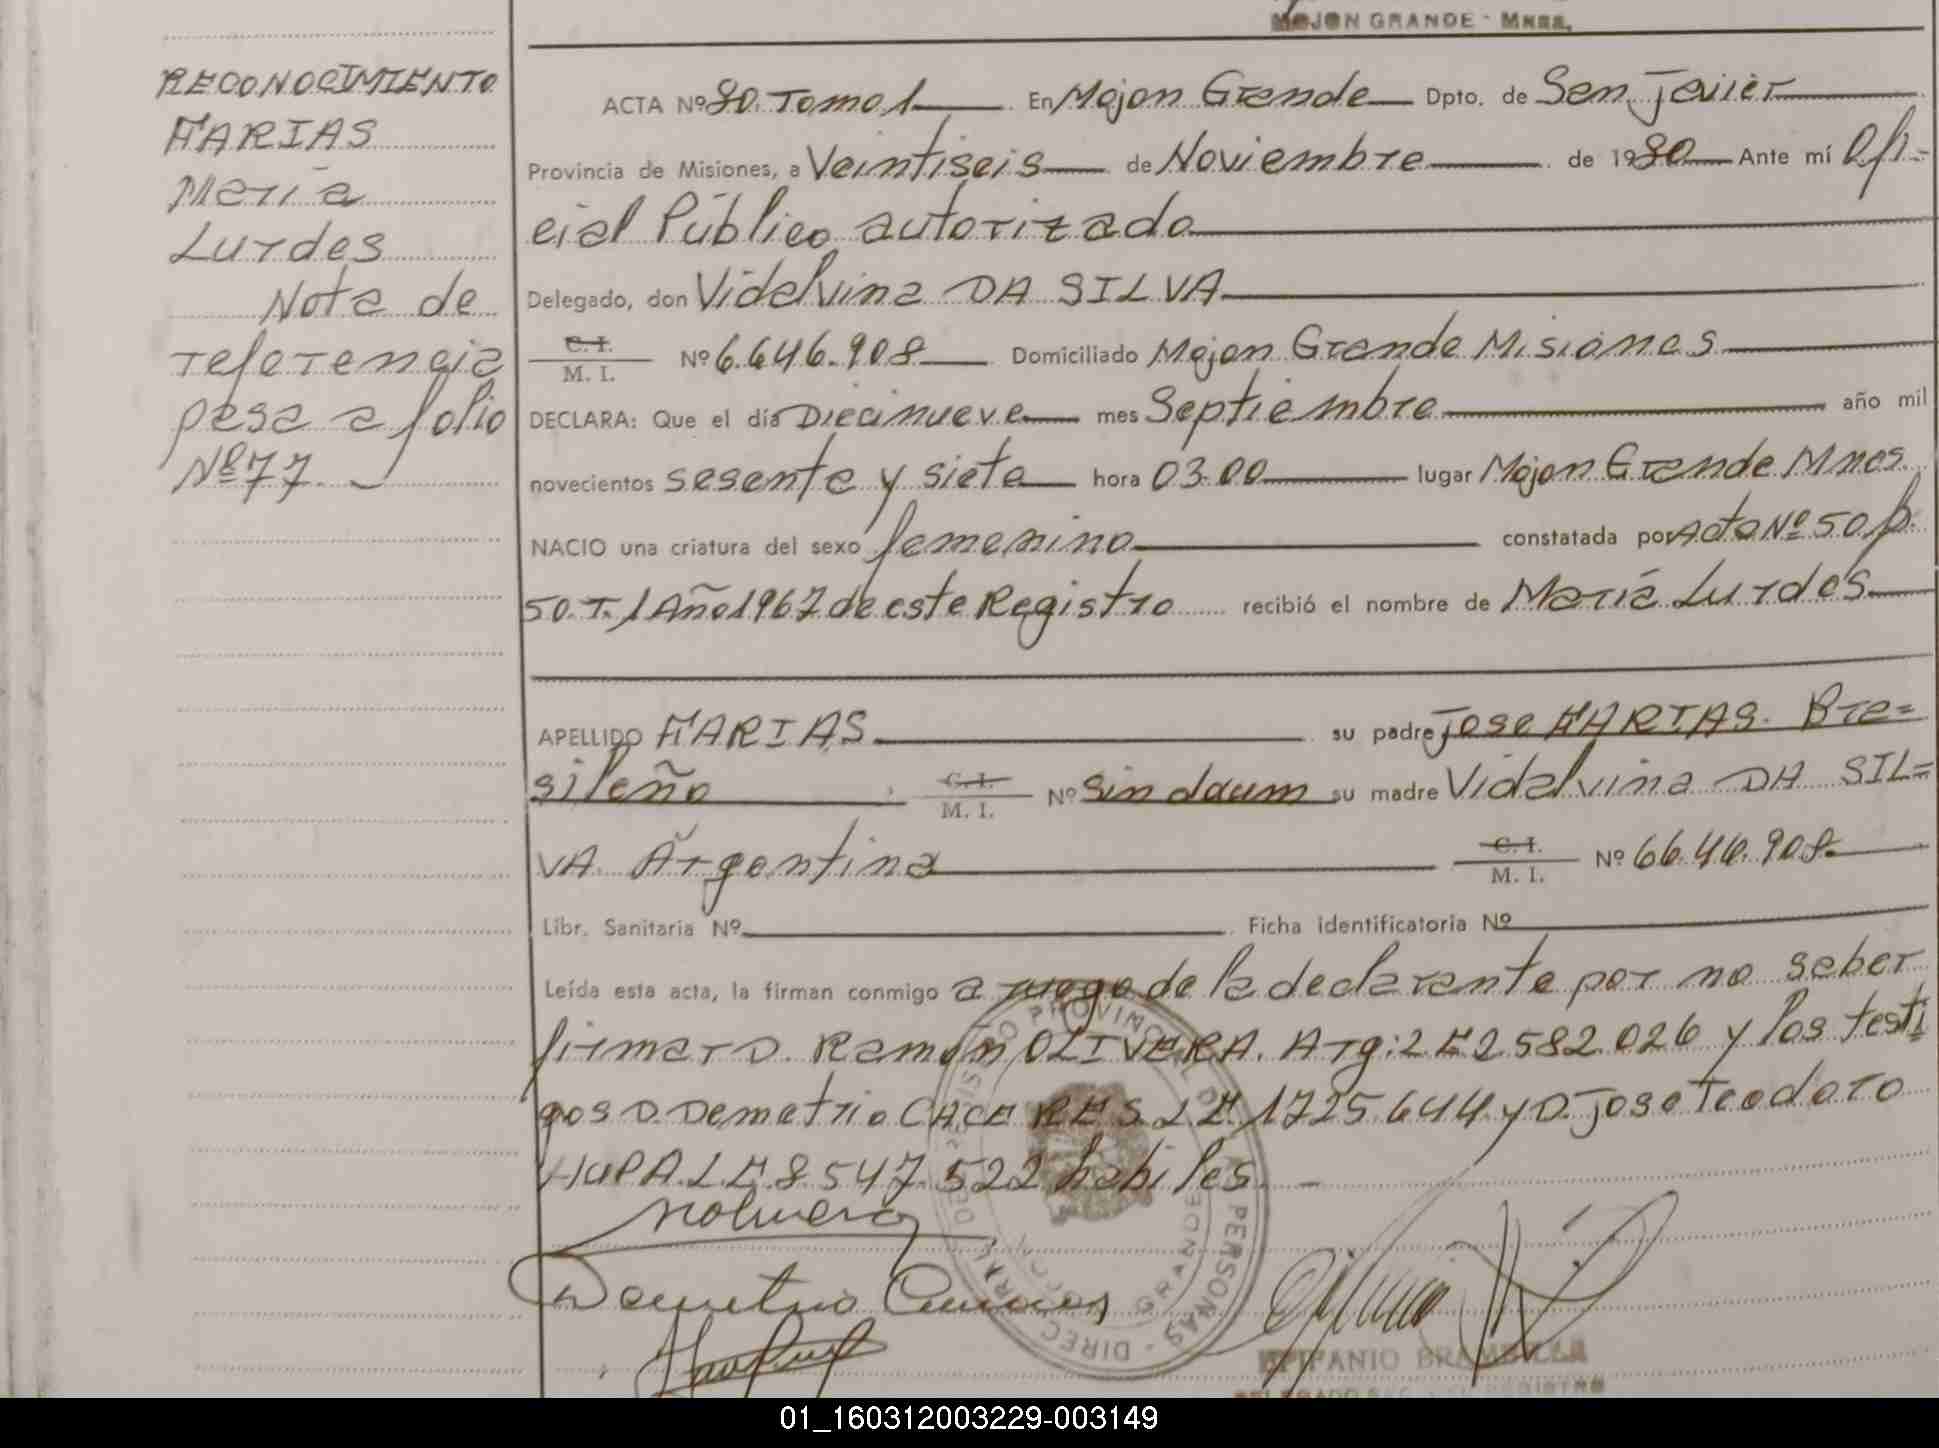 MOJON GRANDE - Mnes.
RECONOCIMIENTO
FARIAS
María
Lurdes
Nota de
referencia
pasa a folio
Nº 77.
ACTA Nº 80. Tomo 1 En Mojon Grande Dpto. de San Javier
Provincia de Misiones, a Veintiseis de Noviembre de 1980 Ante mí Ofi-
cial Público autorizado
Delegado, don Vidalvina DA SILVA
C. I.
M. I. Nº 6.646.908 Domiciliado Mojon Grande Misiones
DECLARA: Que el día Diecinueve mes Septiembre año mil
novecientos sesenta y siete hora 03.00 lugar Mojon Grande Mnes.
NACIO una criatura del sexo femenino constatada por Acta Nº 50 f.
50. T. 1 Año 1967 de este Registro recibió el nombre de María Lurdes
APELLIDO FARIAS su padre Jose FARIAS. Bra=
sileño C. I. M. I. Nº sin docum su madre Vidalvina DA SIL=
VA. Argentina C. I. M. I. Nº 6646.908.
Libr. Sanitaria Nº Ficha identificatoria Nº
Leída esta acta, la firman conmigo a ruego de la declarante por no saber
firmar D. Ramón OLIVERA. Arg: L E 2582.026 y los testi
gos D. Demetrio CACERES L.E. 1725.644 y D. Jose Teodoro
HUPA. L.E. 8.547.522 habiles. -
Demetrio Caceres
DIREC GRAL DE REGISTRO PROVINCIAL DE PERSONAS
GRANDE
EPIFANIO BRAMBILLA
01_160312003229-003149